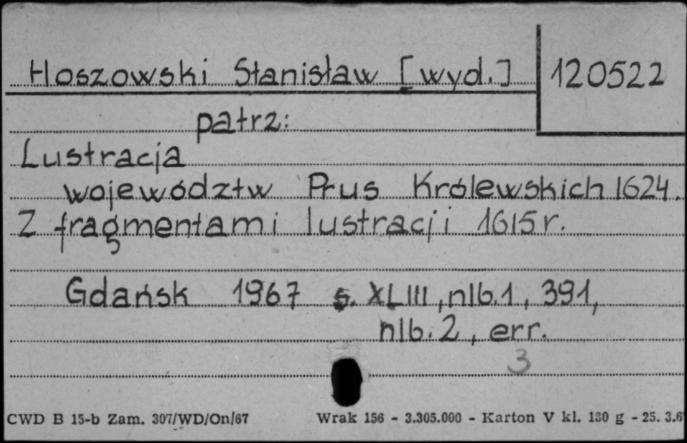 Hoszowski Stanisław [wyd.] 120522
patrz:
Lustracja
województw Prus Królewskich 1624.
Z fragmentami lustracji 1615 r.
Gdańsk 1967 s. XLIII, nlb.1, 391,
nlb. 2, err.
3
CWD B 15-b Zam. 307/WD/On/67 Wrak 156 - 3.305.000 - Karton V kl. 180 g - 25. 3.6